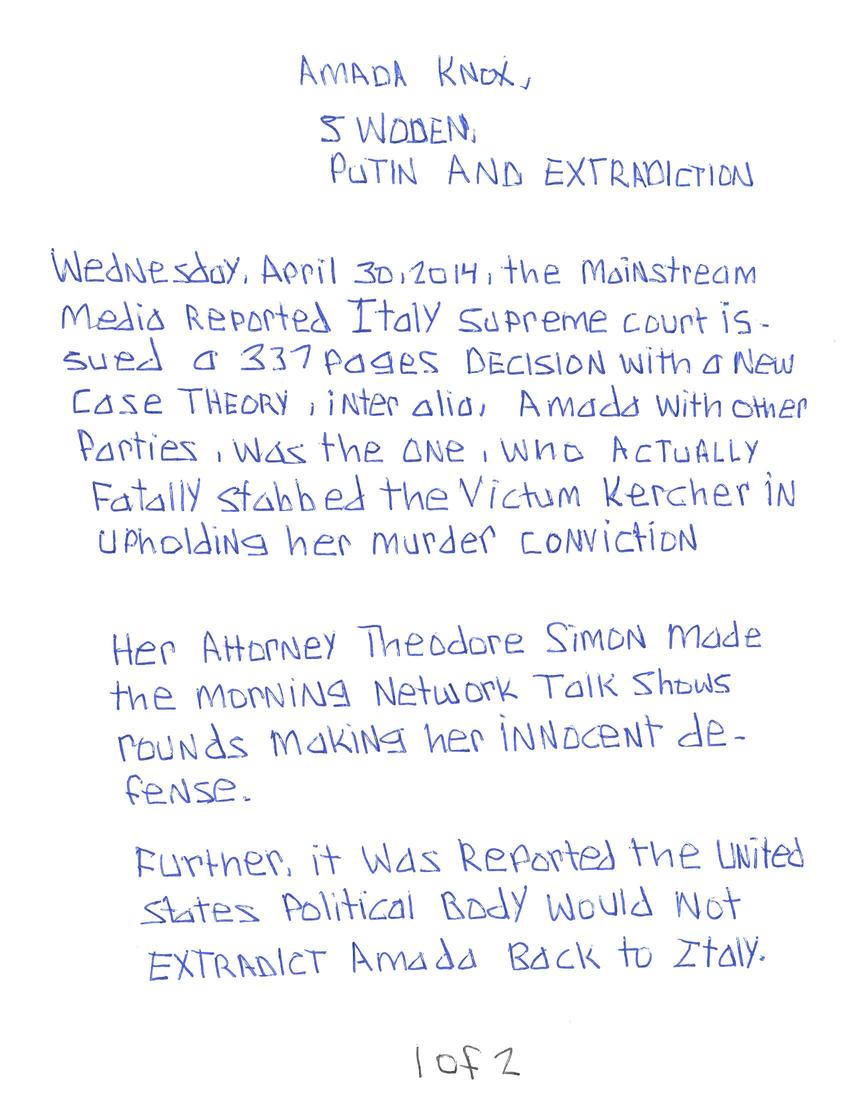 AMADA KNOX,
SWODEN,
PUTIN AND EXTRADICTION
Wednesday, April 30, 2014, the Mainstream
Media Reported Italy Supreme court is-
sued a 337 pages DECISION with a New
Case THEORY, inter alia, Amada with other
Parties, was the one, who ACTUALLY
Fatally stabbed the Victum Kercher in
upholding her murder conviction
Her Attorney Theodore Simon made
the morning Network Talk Shows
rounds making her innocent de-
fense.
Further, it was Reported the United
States Political Body Would Not
EXTRADICT Amada Back to Italy.
1 of 2